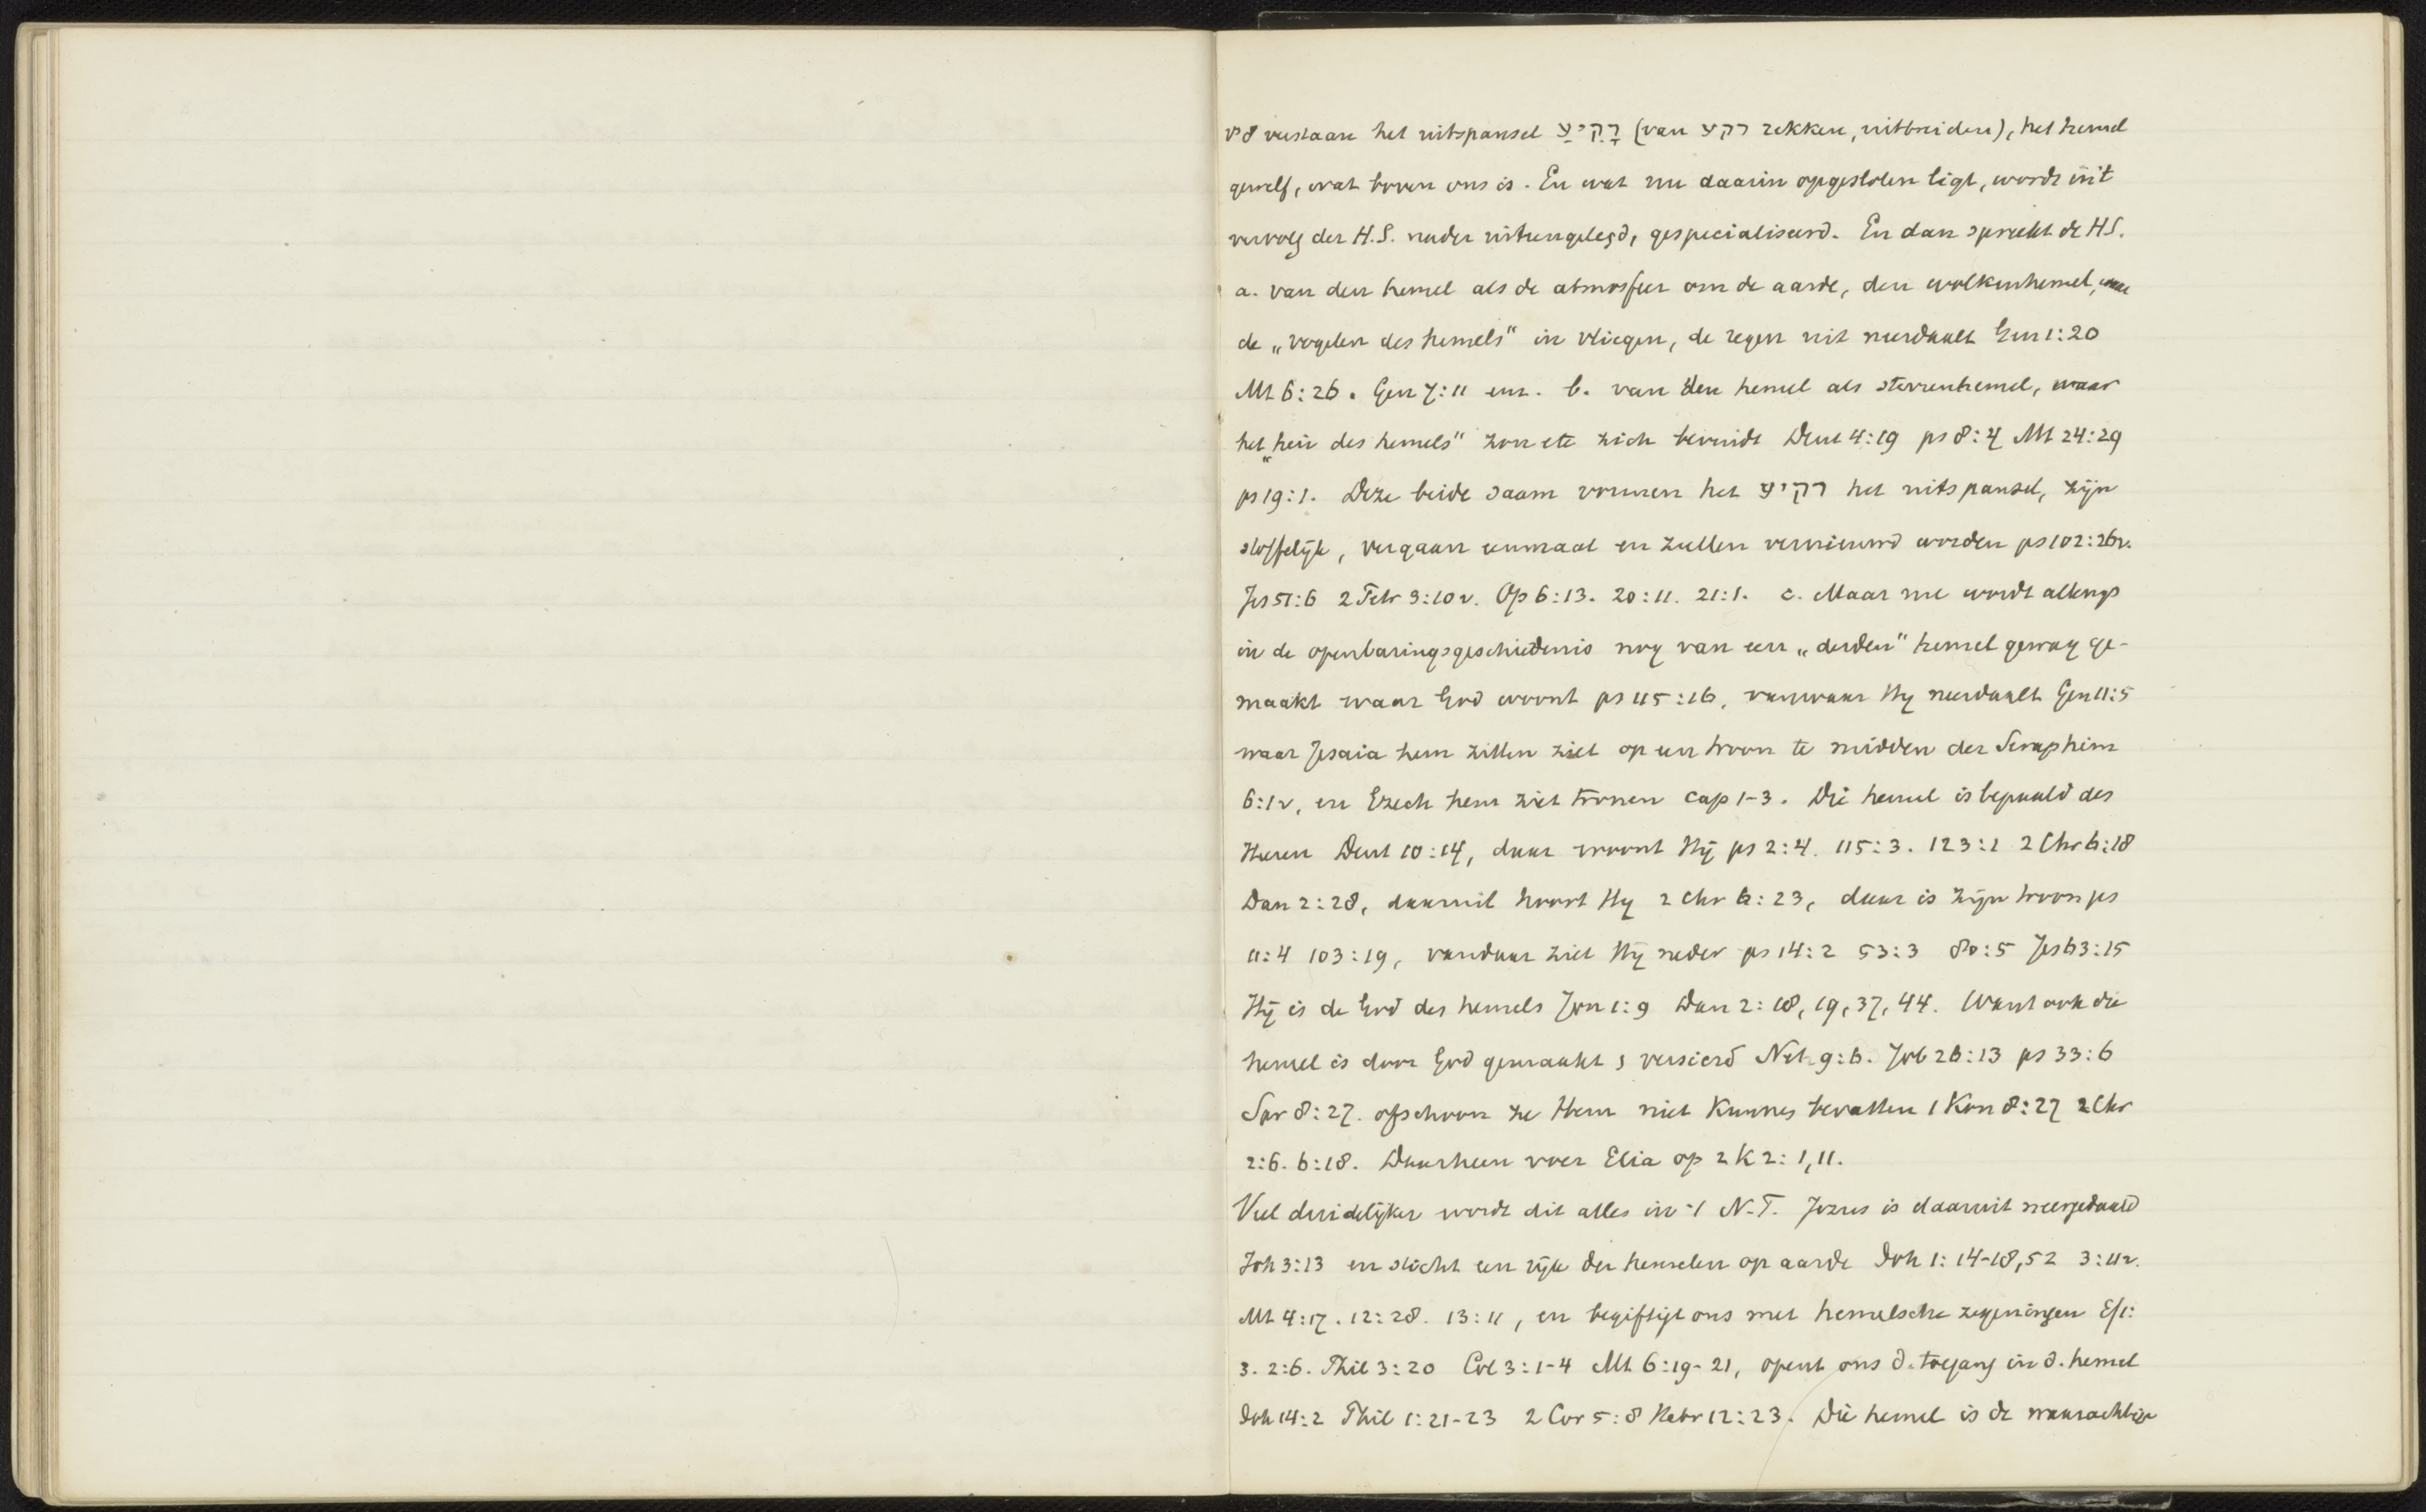 vs 8 verstaan het uitspansel רָקִיַע (van רקע rekken, uitbreiden), het hemel
gewelf, wat boven ons is. En wat nu daarin opgesloten ligt, wordt in 't
vervolg der H.S. nader uiteengelegd, gespecialiseerd. En dan spreekt de H.S.
a. van den hemel als de atmosfeer om de aarde, den wolkenhemel, waar
de „vogelen des hemels" in vliegen, de regen uit neerdaalt Gen 1:20
Mt 6:26. Gen 7:11 enz. b. van den hemel als sterrenhemel, waar
het „heir des hemels" zon etc zich bevindt Deut 4:19 ps 8:4 Mt 24:29
ps 19:1. Deze beide saam vormen het רקיע het uitspansel, zijn
stoffelijk, vergaan eenmaal en zullen vernieuwd worden ps 102:26v.
Jes 51:6 2 Petr 3:10v. Op 6:13. 20:11. 21:1. c. Maar nu wordt allengs
in de openbaringsgeschiedenis nog van een „derden" hemel gewag ge-
maakt waar God woont ps 115:16, vanwaar Hy neerdaalt Gen 11:5
waar Jesaia hem zitten ziet op een troon te midden der Seraphim
6:1v, en Ezech hem ziet tronen cap 1-3. Die hemel is bepaald des
Heeren Deut 10:14, daar woont Hij ps 2:4. 115:3. 123:1 2 Chr 6:18
Dan 2:28, daaruit hoort Hy 2 Chr 6:23, daar is zijn troon ps
11:4 103:19, vandaar ziet Hij neder ps 14:2 53:3 80:5 Jes 63:15
Hij is de God des hemels Jon 1:9 Dan 2:18,19,37,44. Want ook die
hemel is door God gemaakt & versierd Neh 9:6. Job 26:13 ps 33:6
Spr 8:27. ofschoon ze Hem niet kunnen bevatten 1 Kon 8:27 2 Chr
2:6. 6:18. Daarheen voer Elia op 2 K 2:1,11.
Veel duidelijker wordt dit alles in 't N.T. Jezus is daaruit neergedaald
Joh 3:13 en sticht een rijk der hemelen op aarde Joh 1:14-18,52 3:11v.
Mt 4:17. 12:28. 13:11, en begiftigt ons met hemelsche zegeningen Ef 1:
3. 2:6. Phil 3:20 Col 3:1-4 Mt 6:19-21, opent ons d. toegang in d. hemel
Joh 14:2 Phil 1:21-23 2 Cor 5:8 Hebr 12:23. Die hemel is de waarachtige